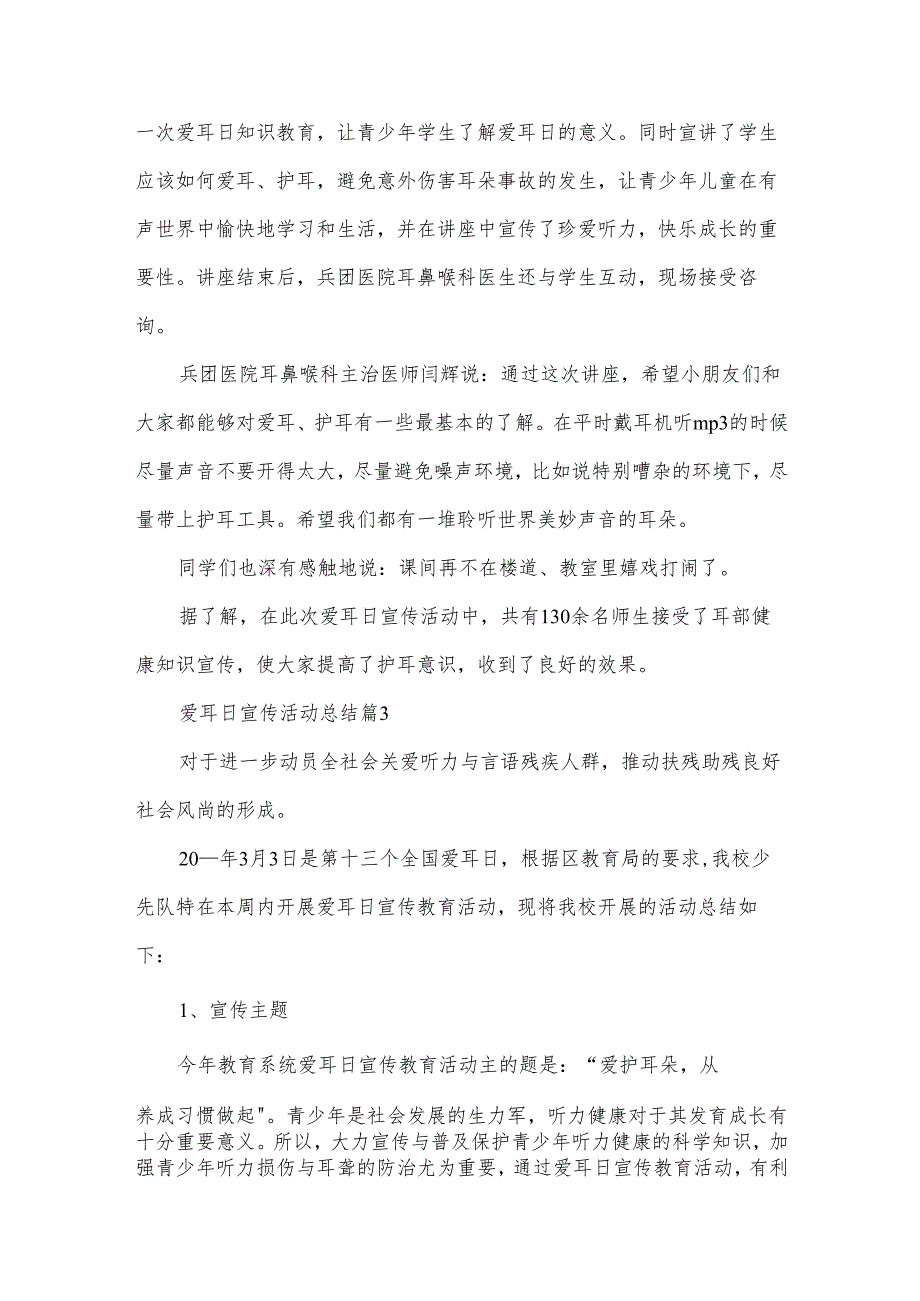 一次爱耳日知识教育，让青少年学生了解爱耳日的意义。同时宣讲了学生
应该如何爱耳、护耳，避免意外伤害耳朵事故的发生，让青少年儿童在有
声世界中愉快地学习和生活，并在讲座中宣传了珍爱听力，快乐成长的重
要性。讲座结束后，兵团医院耳鼻喉科医生还与学生互动，现场接受咨
询。
兵团医院耳鼻喉科主治医师闫辉说：通过这次讲座，希望小朋友们和
大家都能够对爱耳、护耳有一些最基本的了解。在平时戴耳机听mp3的时候
尽量声音不要开得太大，尽量避免噪声环境，比如说特别嘈杂的环境下，尽
量带上护耳工具。希望我们都有一堆聆听世界美妙声音的耳朵。
同学们也深有感触地说：课间再不在楼道、教室里嬉戏打闹了。
据了解，在此次爱耳日宣传活动中，共有130余名师生接受了耳部健
康知识宣传，使大家提高了护耳意识，收到了良好的效果。
爱耳日宣传活动总结篇3
对于进一步动员全社会关爱听力与言语残疾人群，推动扶残助残良好
社会风尚的形成。
20—年3月3日是第十三个全国爱耳日，根据区教育局的要求,我校少
先队特在本周内开展爱耳日宣传教育活动，现将我校开展的活动总结如
下：
1、宣传主题
今年教育系统爱耳日宣传教育活动主的题是：“爱护耳朵，从
养成习惯做起"。青少年是社会发展的生力军，听力健康对于其发育成长有
十分重要意义。所以，大力宣传与普及保护青少年听力健康的科学知识，加
强青少年听力损伤与耳聋的防治尤为重要，通过爱耳日宣传教育活动，有利